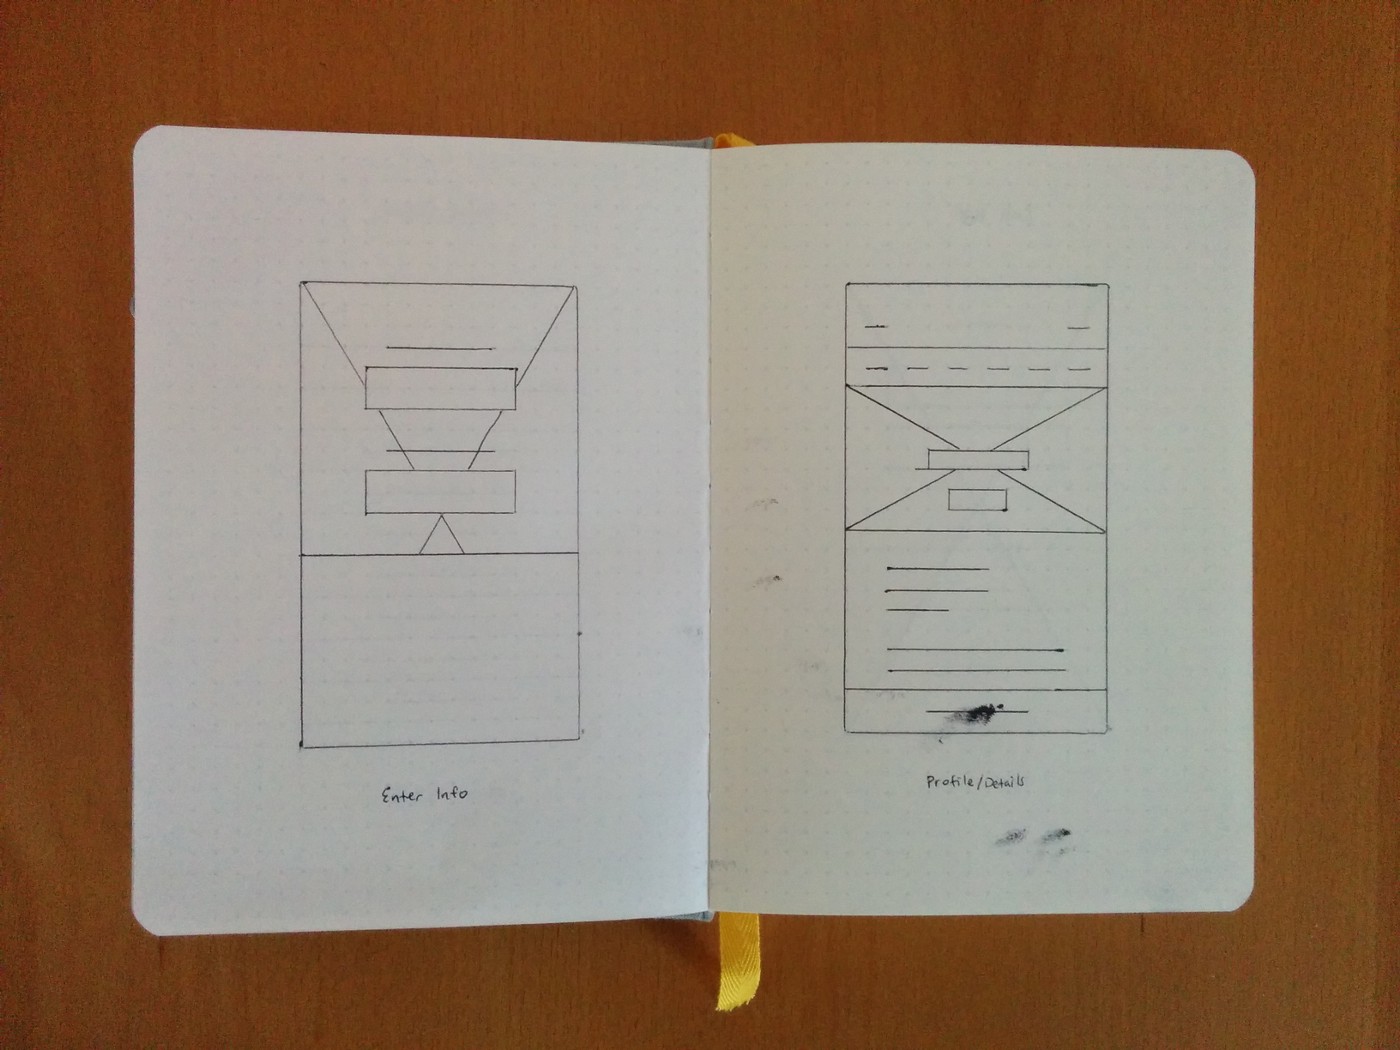 Enter Info
Profile/Details